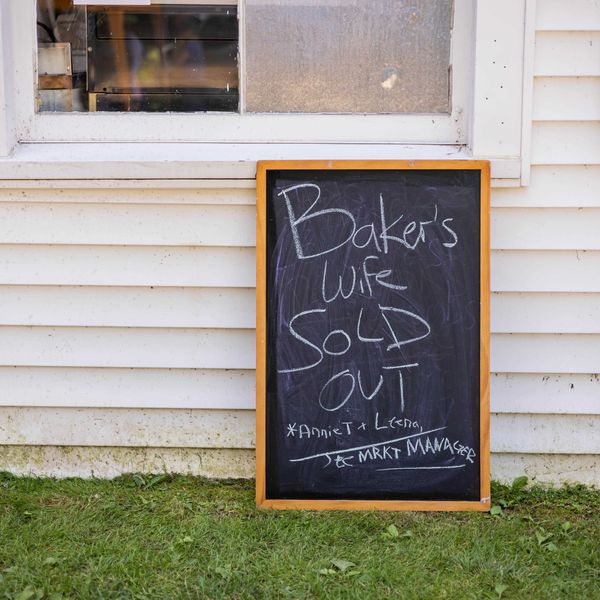 Baker's
Wife
SOLD
OUT
*Annie T + Leena,
see MRKT MANAGER